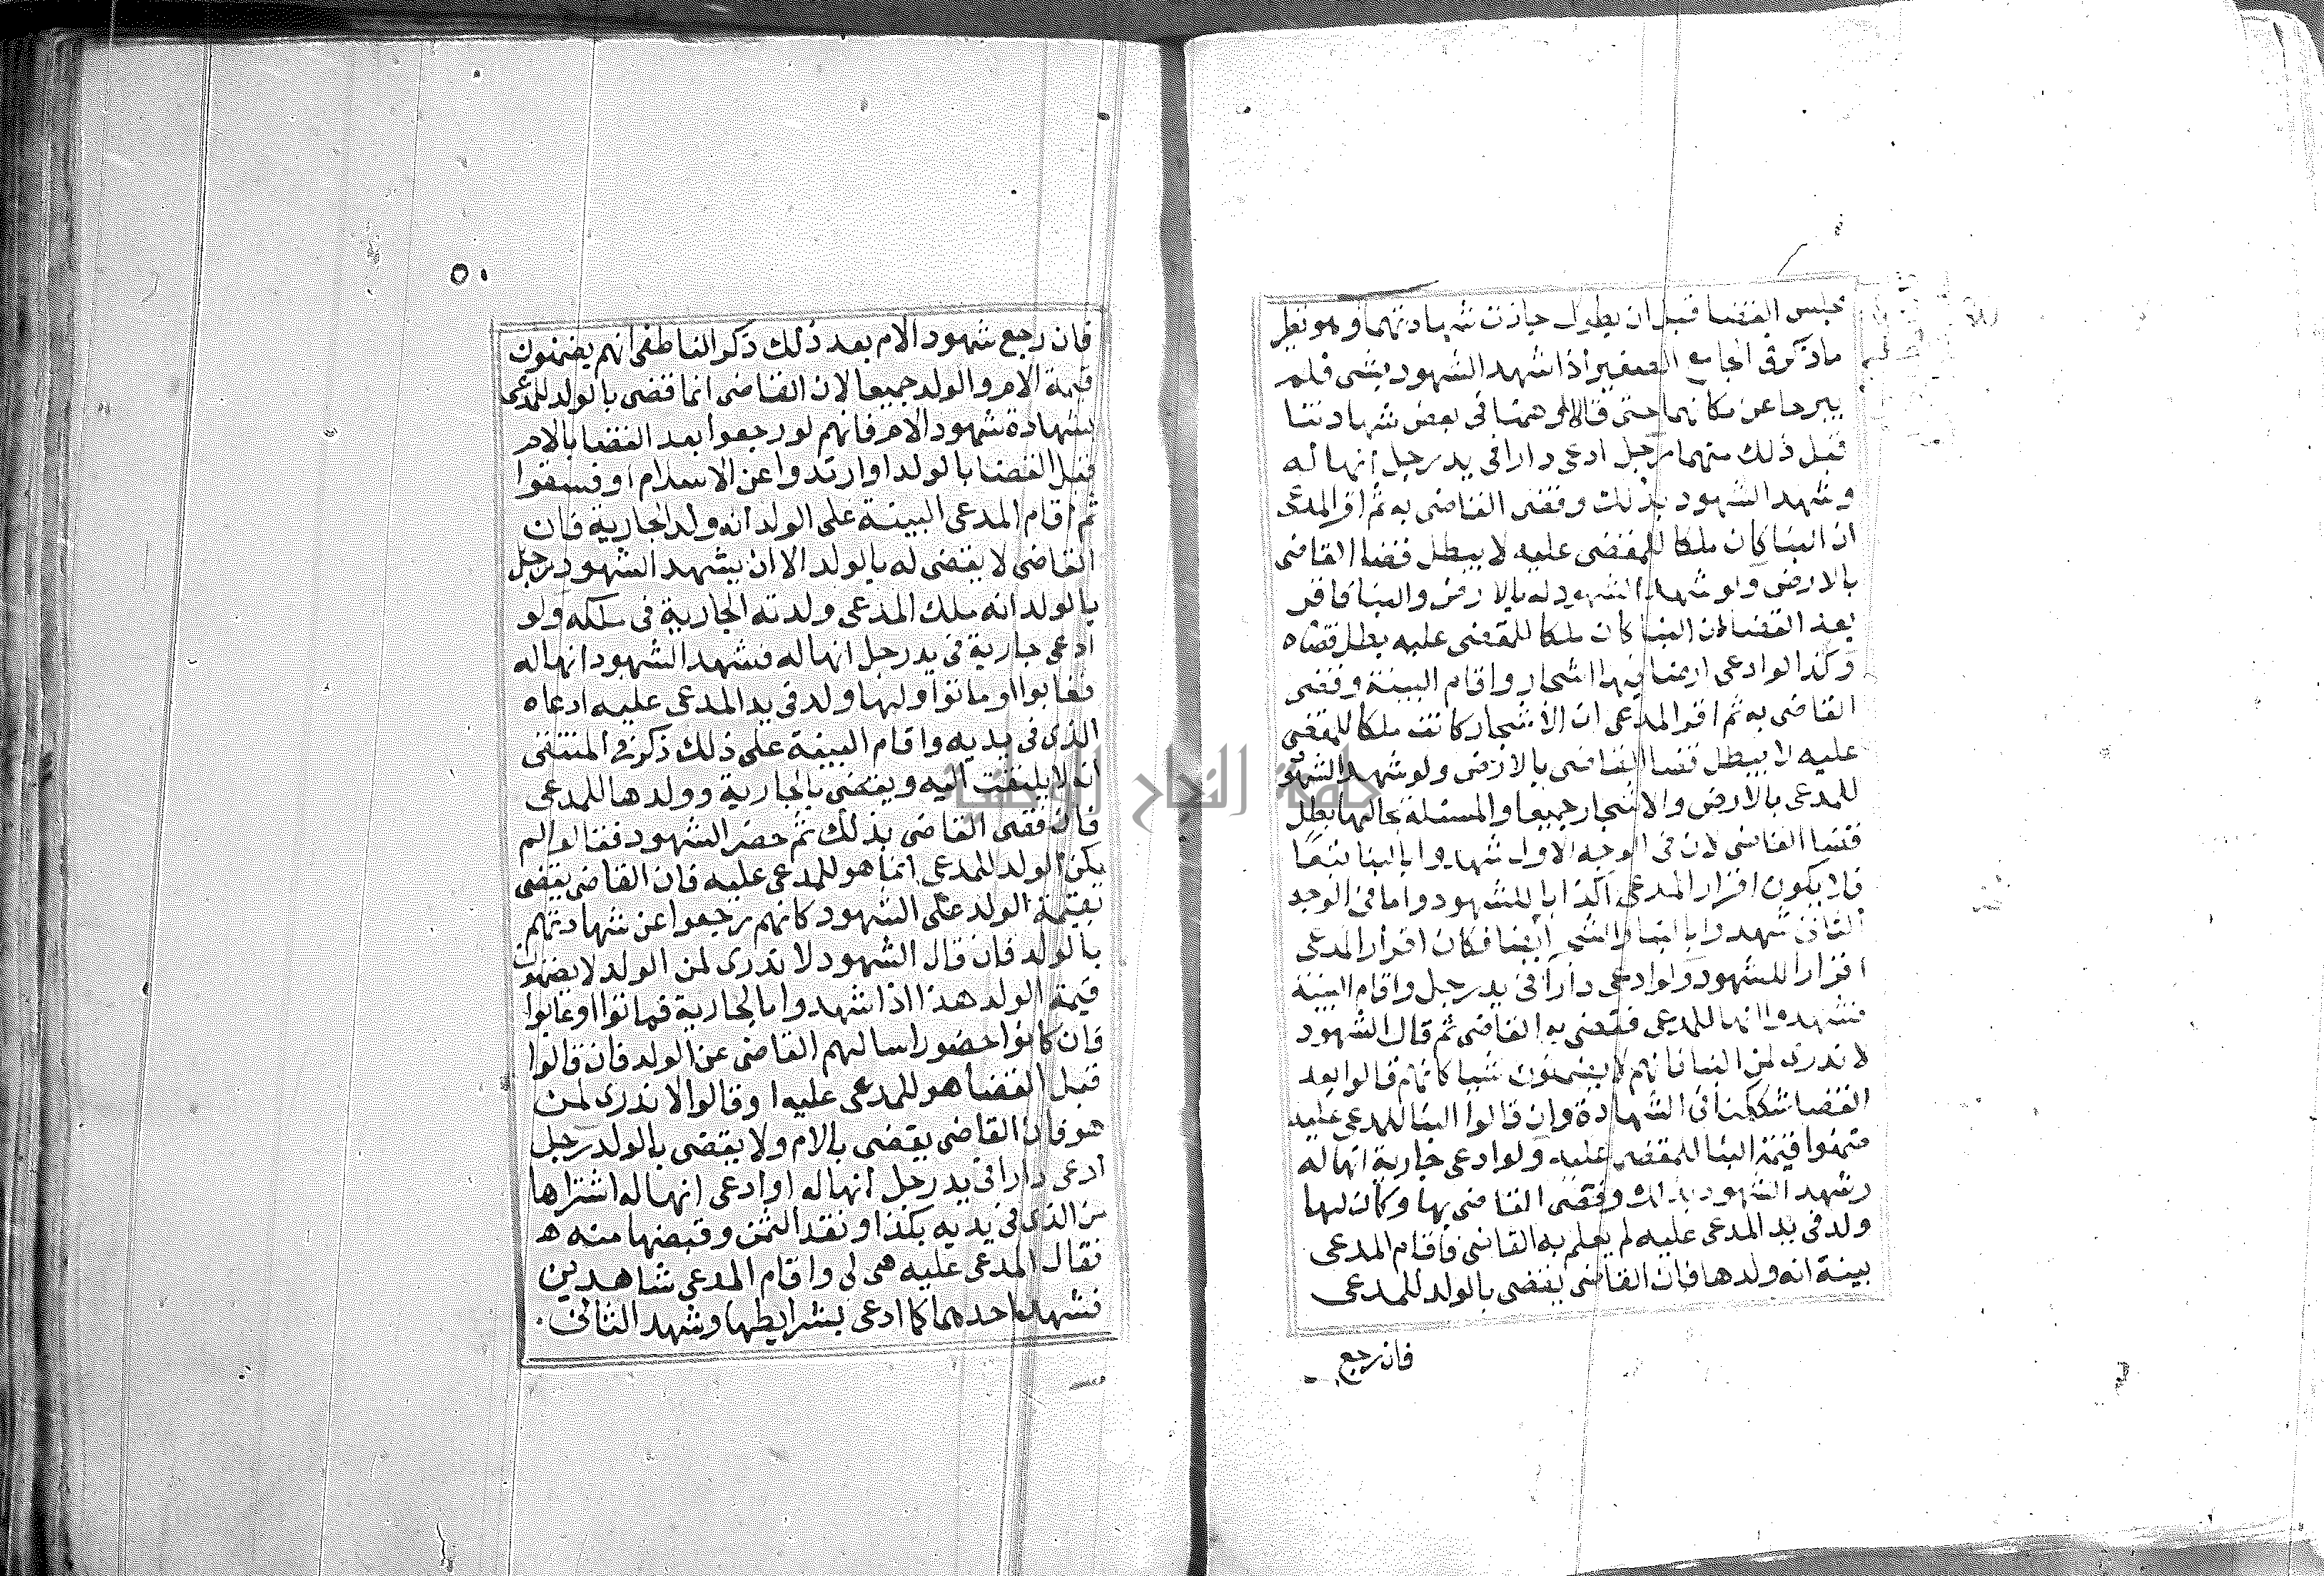 مجلس القضا قبل ان يطول جازت شهادتهما وهو نظير
ماذكر في الجامع الصغير اذا شهد الشهود بشى فلم
يبرحا عن مكانهما حتى قالا اوهمنا في بعض شهادتنا
قبل ذلك منهما رجل ادعى دارا في يد رجل انها له
وشهد الشهود بذلك وقضى القاضى به ثم اقر المدعى
ان البنا كان ملكا للمقضى عليه لا يبطل قضا القاضى
بالارض ولو شهد الشهود له بالارض والبنا فاقر
بعد القضا ان البنا كان ملكا للمقضى عليه بطل قضاه
وكذا لو ادعى ارضا فيها اشجار واقام البينة وقضى
القاضى به ثم اقر المدعى ان الاشجار كانت ملكا للمقضى
عليه لا يبطل قضا القاضى بالارض ولو شهد الشهود
للمدعى بالارض والاشجار جميعا والمسئلة بحالها بطل
قضا القاضى لان في الوجه الاول شهدوا بالبنا تبعا
فلا يكون اقرار المدعى اكذابا للشهود واما في الوجه
الثانى شهدوا بالبنا والشجر ايضا فكان اقرار المدعى
اقرارا للشهود ولو ادعى دارا في يد رجل واقام البينة
فشهدوا انها للمدعى فقضى به القاضى ثم قال الشهود
لا ندرى لمن البنا فانهم لا يضمنون شيا كانهم قالوا بعد
القضا شككنا في الشهادة وان قالوا البنا للمدعى عليه
ضمنوا قيمة البنا للمقضى عليه ولو ادعى جارية انها له
وشهد الشهود بذلك وقضى القاضى بها وكان لها
ولد في يد المدعى عليه لم يعلم به القاضى فاقام المدعى
بينة انه ولدها فان القاضى يقضى بالولد للمدعى
فان رجع
٥٠
فان رجع شهود الام بعد ذلك ذكر الناطفى انهم يضمنون
قيمة الام والولد جميعا لان القاضى انما قضى بالولد للمدعى
بشهادة شهود الام فانهم لو رجعوا بعد القضا بالام
قبل القضا بالولد او ارتدوا عن الاسلام او فسقوا
ثم اقام المدعى البينة على الولد انه ولد الجارية فان
القاضى لا يقضى له بالولد الا ان يشهد الشهود رجل
بالولد انه ملك المدعى ولدته الجارية في ملكه ولو
ادعى جارية في يد رجل انها له فشهد الشهود انها له
فغابوا او ماتوا ولها ولد في يد المدعى عليه ادعاه
الذى في يديه واقام البينة على ذلك ذكر في المنتقى
انه لا يلتفت اليه ويقضى بالجارية وولدها للمدعى
فان قضى القاضى بذلك ثم حضر الشهود فقالوا لم
يكن الولد للمدعى انما هو للمدعى عليه فان القاضى يقضى
بقيمة الولد على الشهود كانهم رجعوا عن شهادتهم
بالولد فان قال الشهود لا ندرى لمن الولد لا يضمنون
قيمة الولد هذا اذا شهدوا بالجارية فماتوا او غابوا
فان كانوا حضورا سالهم القاضى عن الولد فان قالوا
قبل القضا هو للمدعى عليه او قالوا لا ندرى لمن
هو فان القاضى يقضى بالام ولا يقضى بالولد رجل
ادعى دارا في يد رجل انها له او ادعى انها له اشتراها
من الذى في يديه بكذا ونقد الثمن وقبضها منه ه
فقال المدعى عليه هى لى واقام المدعى شاهدين
فشهد احدهما كما ادعى بشرايطها وشهد الثانى
جامعة النجاح الوطنية